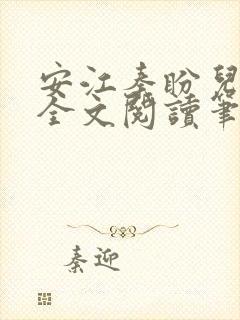 安江秦盼兒
全文閱讀筆
秦迎